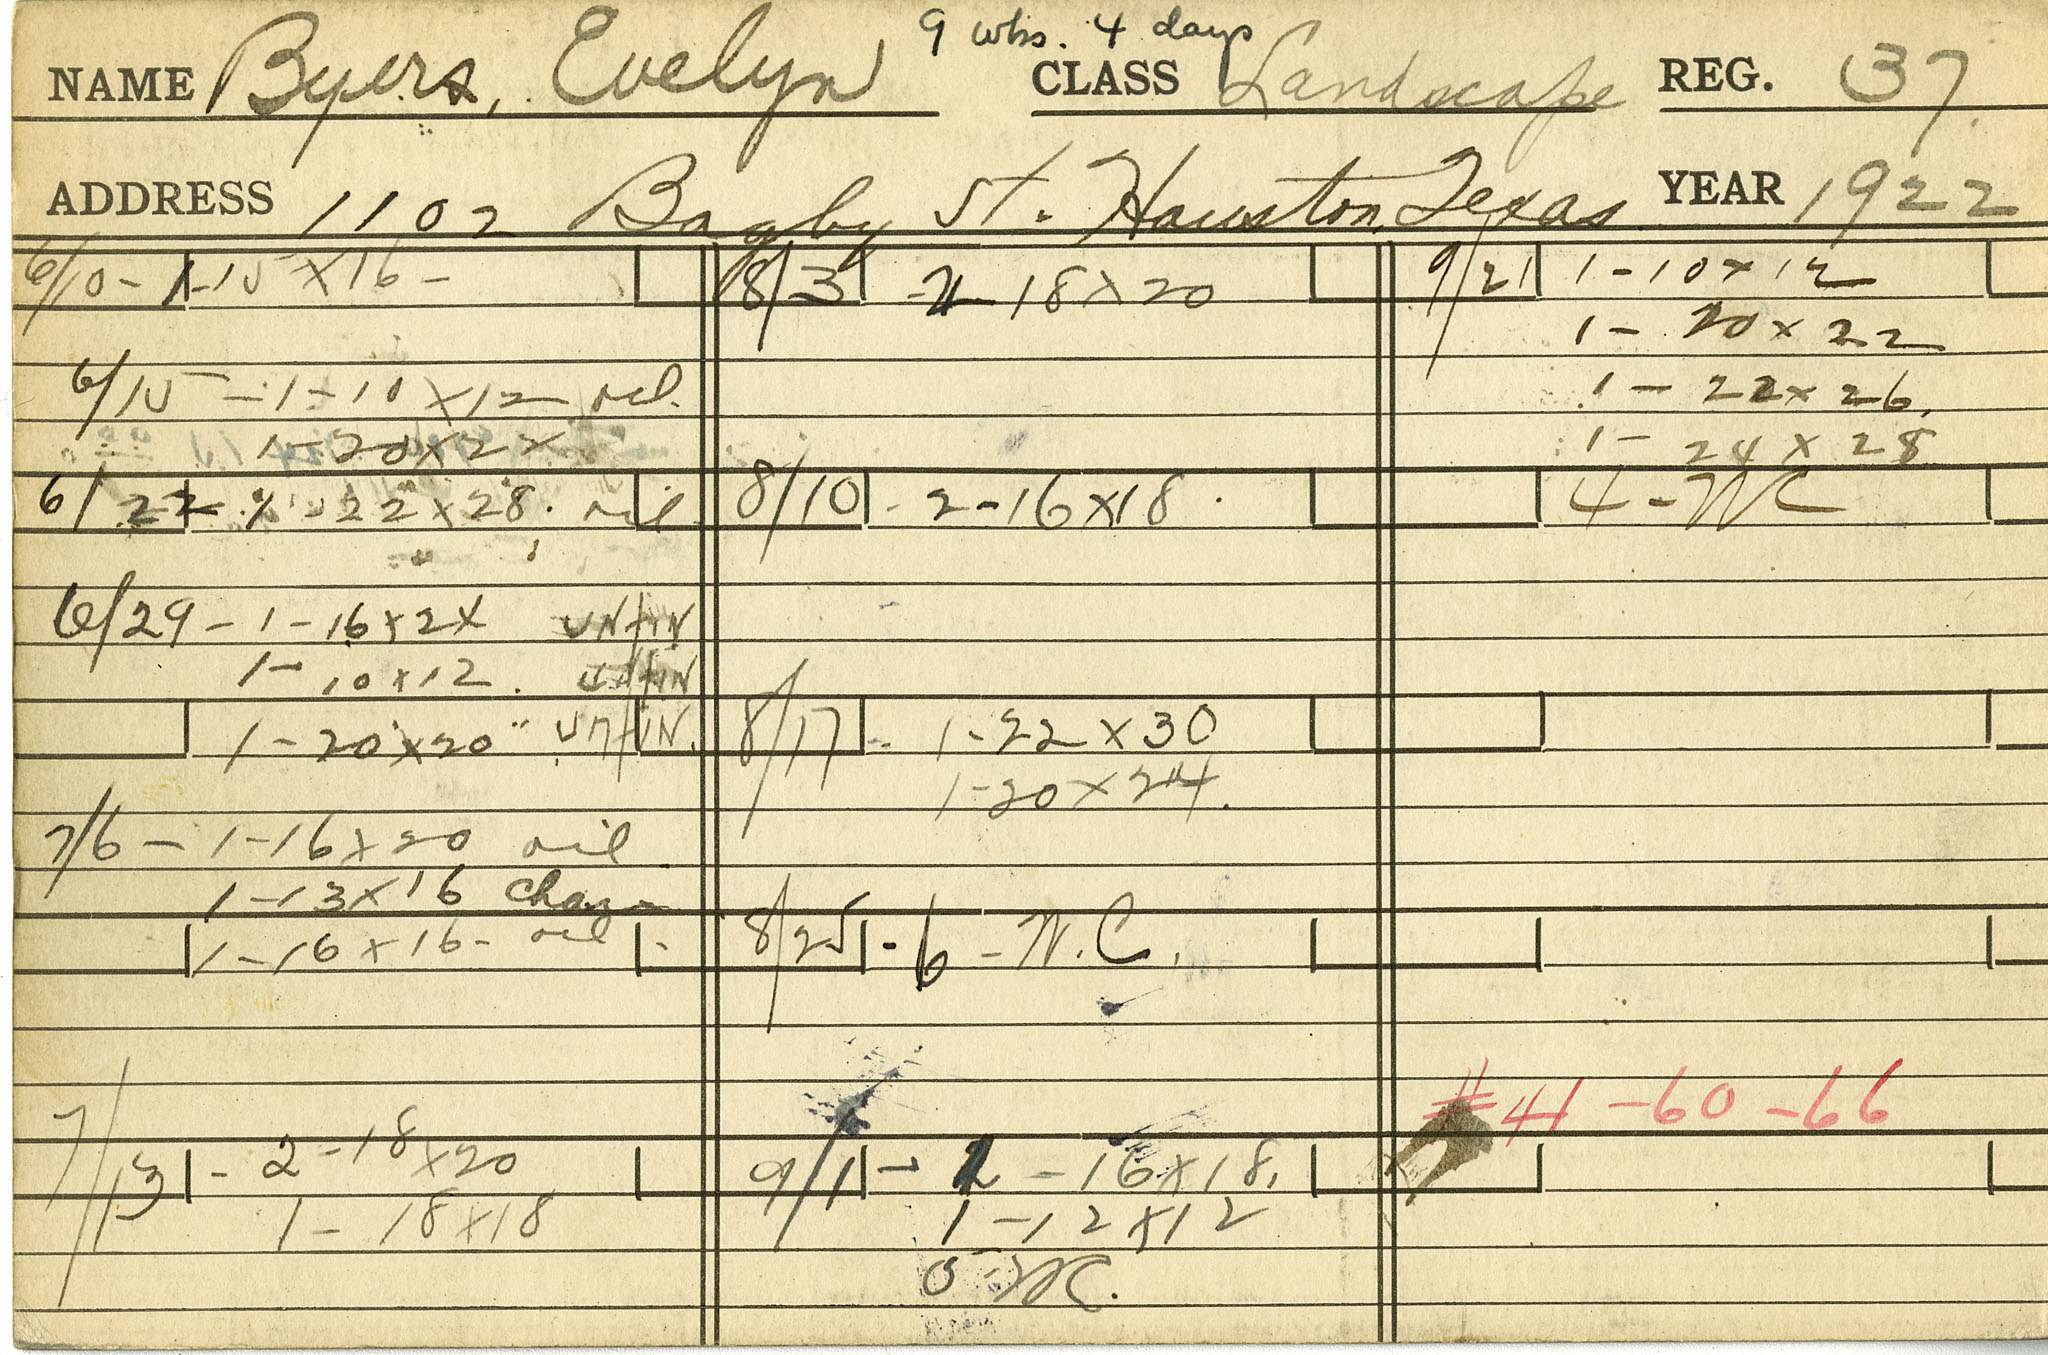 9 wks. 4 days
NAME Byers, Evelyn CLASS Landscape REG. 37
ADDRESS 1102 Bagby St. Houston, Texas YEAR 1922
6/10 - 1-15 x 16 -
6/15 - 1 - 10 x 12 oil.
1 - 20 x 2
6/22 1 - 22" x 28. oil
6/29 - 1 - 16 x 2 UNFIN
1 - 10 x 12. UNFIN
1 - 20 x 20" UNFIN.
7/6 - 1 - 16 x 20 oil
1 - 13 x 16 Char
1 - 16 x 16 - oil
7/13 - 2 - 18 x 20
1 - 18 x 18
8/3 - 18 x 20
8/10 - 2 - 16 x 18.
8/17 - 1 - 22 x 30
1 - 20 x 24.
8/25 - 6 - W.C.
9/1 - 2 - 16 x 18.
1 - 12 x 12
5 - WC.
9/21 1 - 10 x 12
1 - 20 x 22
1 - 22 x 26.
1 - 24 x 28
4 - WC
#41 - 60 - 66